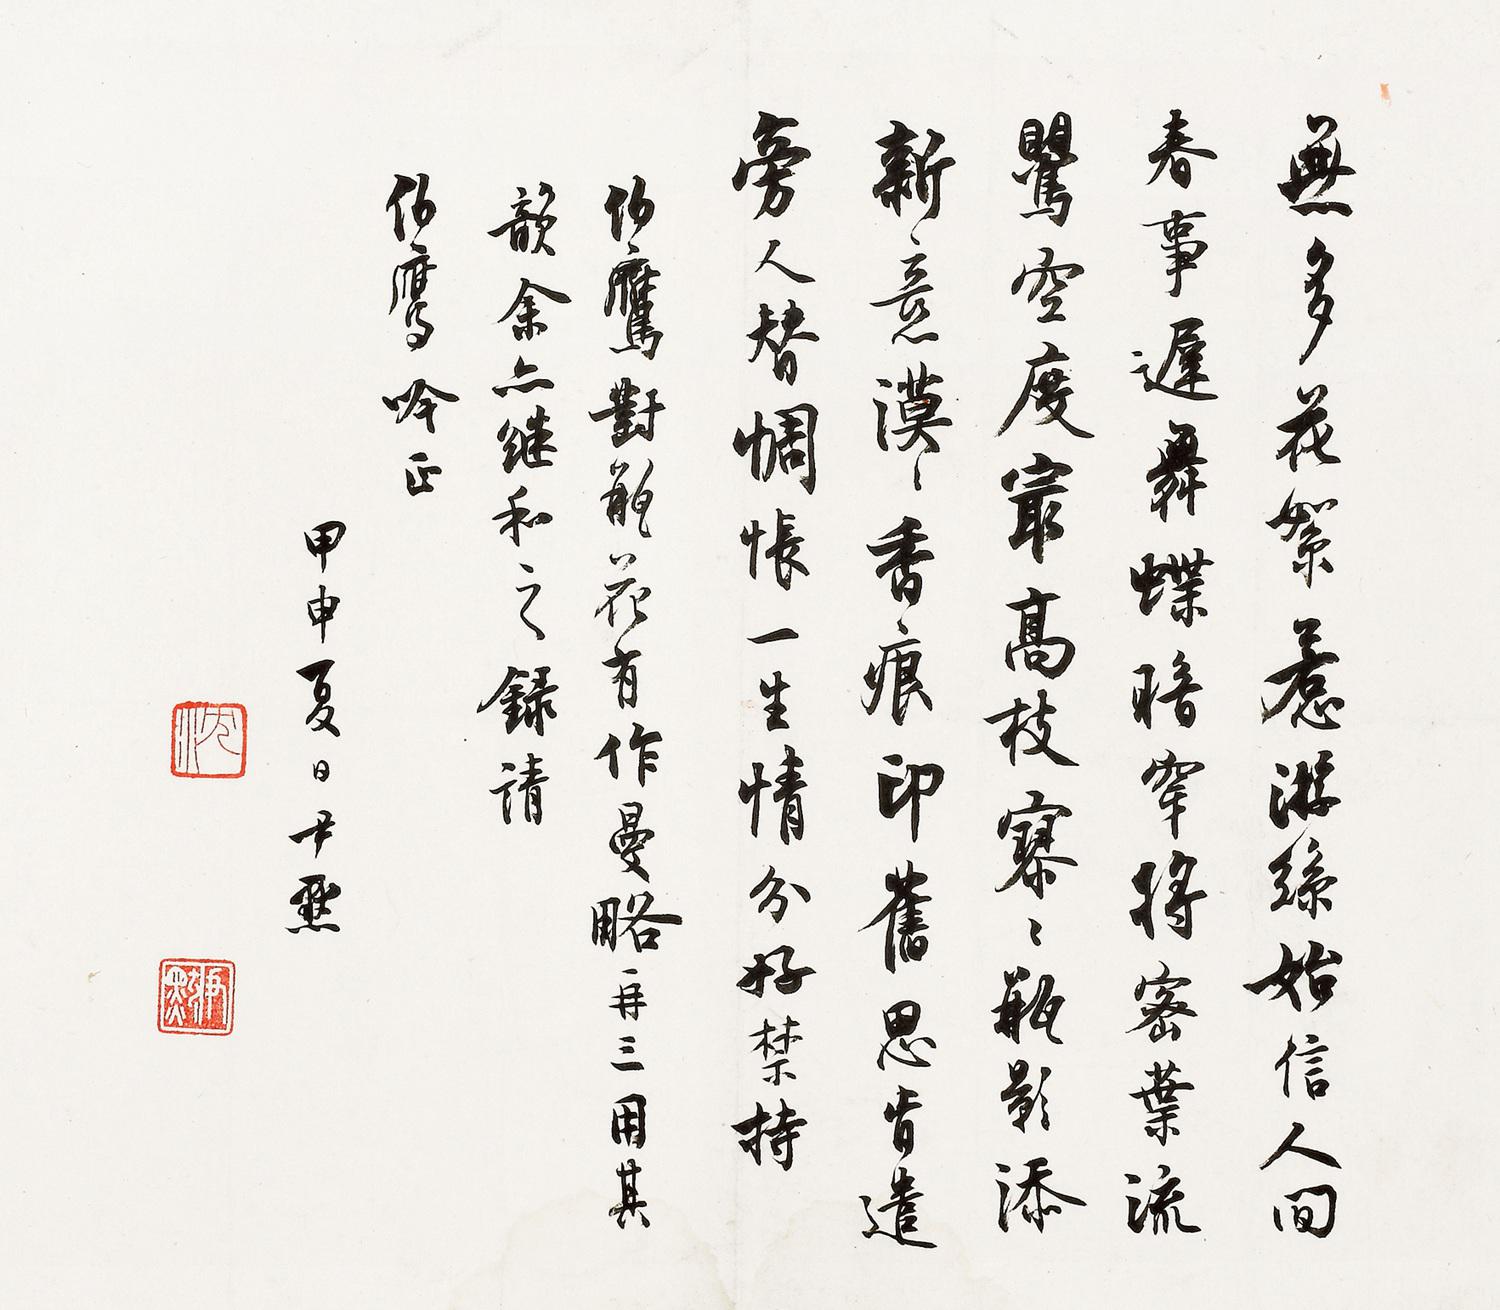 無多花絮惹游絲始信人間
春事遲舞蝶暗牽將密葉流
鸎空度最高枝寥〻瓶影添
新意漠〻香痕印舊思肯遣
旁人替惆悵一生情分好禁持
伯鷹對瓶花有作曼略再三用其
韻余亦繼和之錄請
伯鷹吟正
甲申夏日尹默
沈
尹默